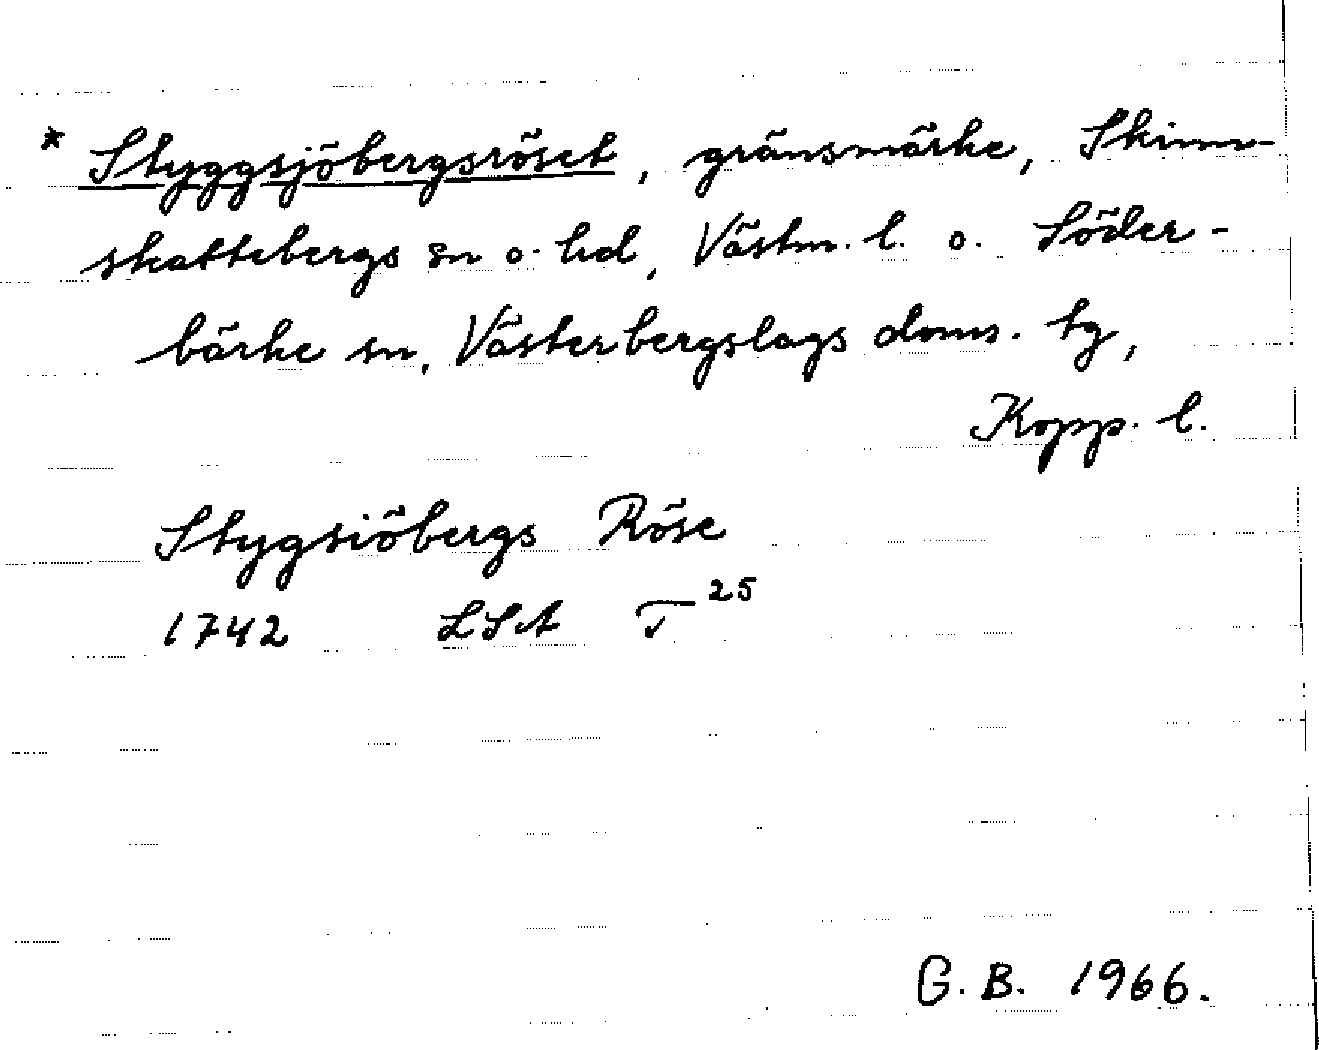 * Styggsjöbergsröset, gränsmärke, Skinn-
skattebergs sn o. hd, Västm. l. o. Söder-
bärke sn, Västerbergslags doms. tg,
Kopp. l.
Stygsiöbergs Röse
1742 LSA T 25
G. B. 1966.